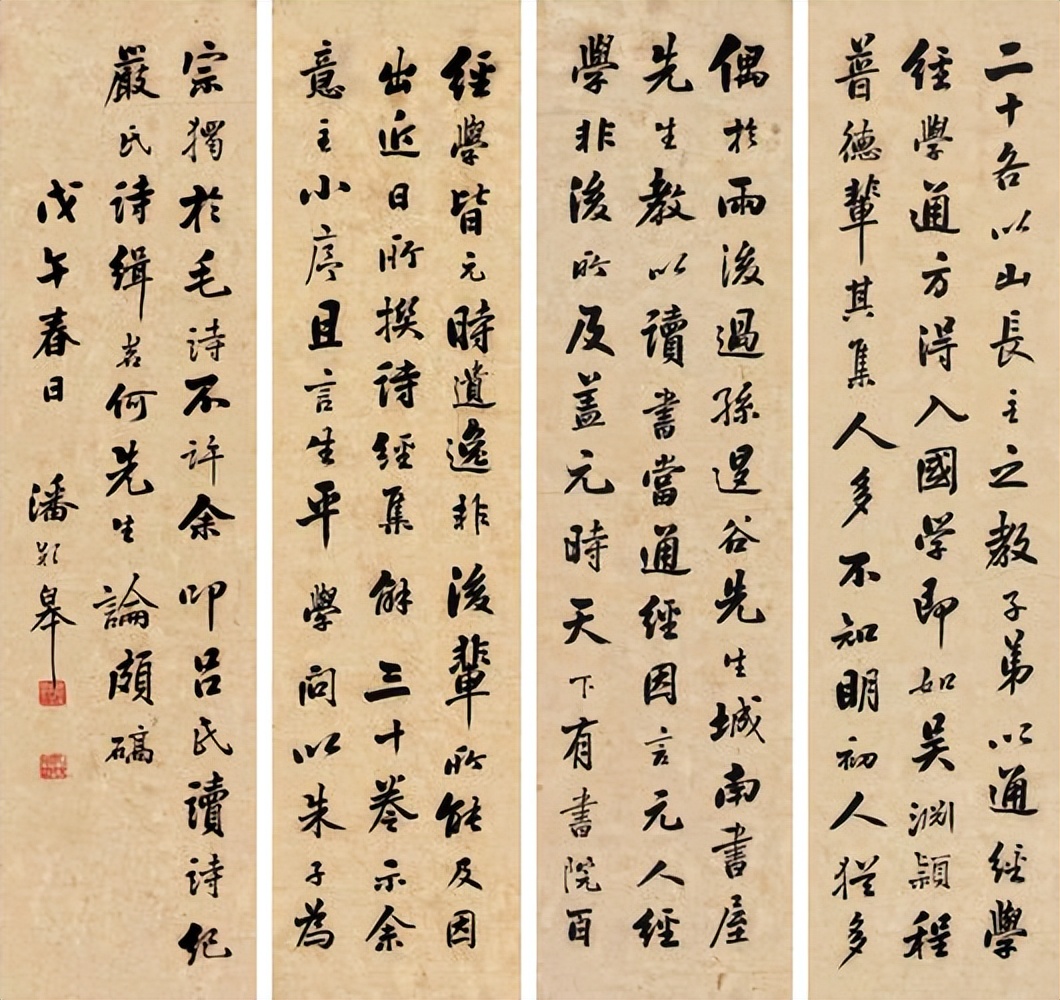 二十各以山長主之教子弟以通經學
經學通方得入國学即如吴渊穎程
普德輩其集人多不知明初人猶多
偶於雨後過孫退谷先生城南書屋
先生教以讀書當通經因言元人經
學非後所及盖元時天下有書院百
經學皆元時遺逸非後輩所能及因
出近日所撰詩經集解三十卷示余
意主小序且言生平學問以朱子為
宗獨於毛詩不許余叩吕氏讀詩紀
嚴氏詩缉若何先生論頗碻
戊午春日 潘齡皋